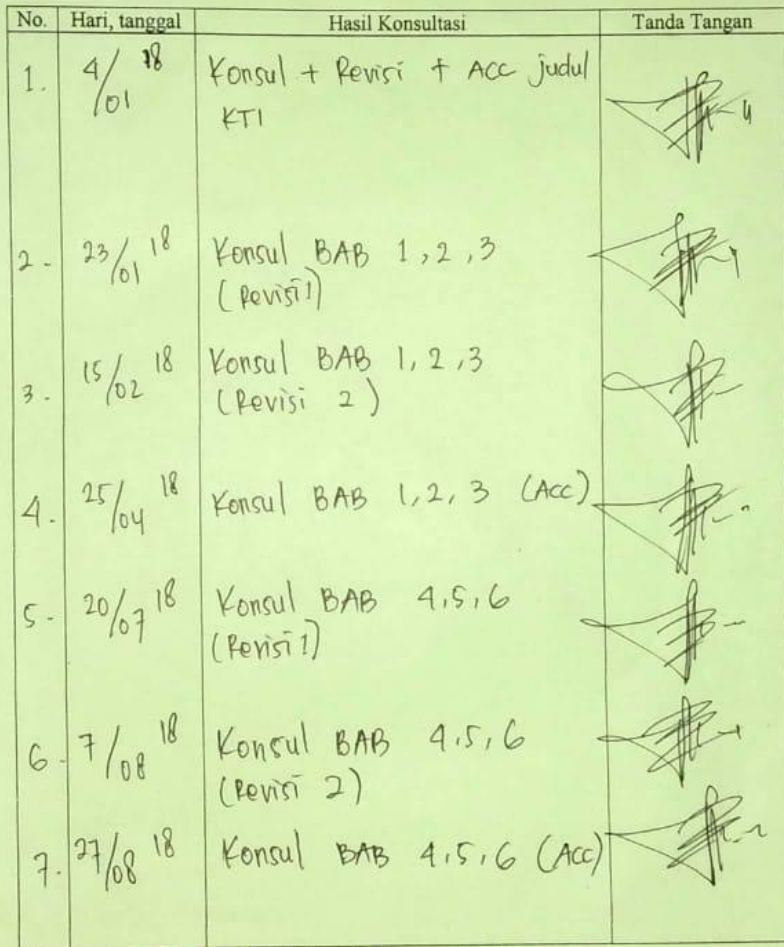 No. Hari, tanggal Hasil Konsultasi Tanda Tangan
1. 4/01 18 Konsul + Revisi + ACC judul
KTI
2. 23/01 18 Konsul BAB 1, 2, 3
(Revisi 1)
3. 15/02 18 Konsul BAB 1, 2, 3
(Revisi 2)
4. 25/04 18 Konsul BAB 1, 2, 3 (Acc)
5. 20/07 18 Konsul BAB 4, 5, 6
(Revisi 1)
6. 7/08 18 Konsul BAB 4, 5, 6
(Revisi 2)
7. 27/08 18 Konsul BAB 4, 5, 6 (Acc)